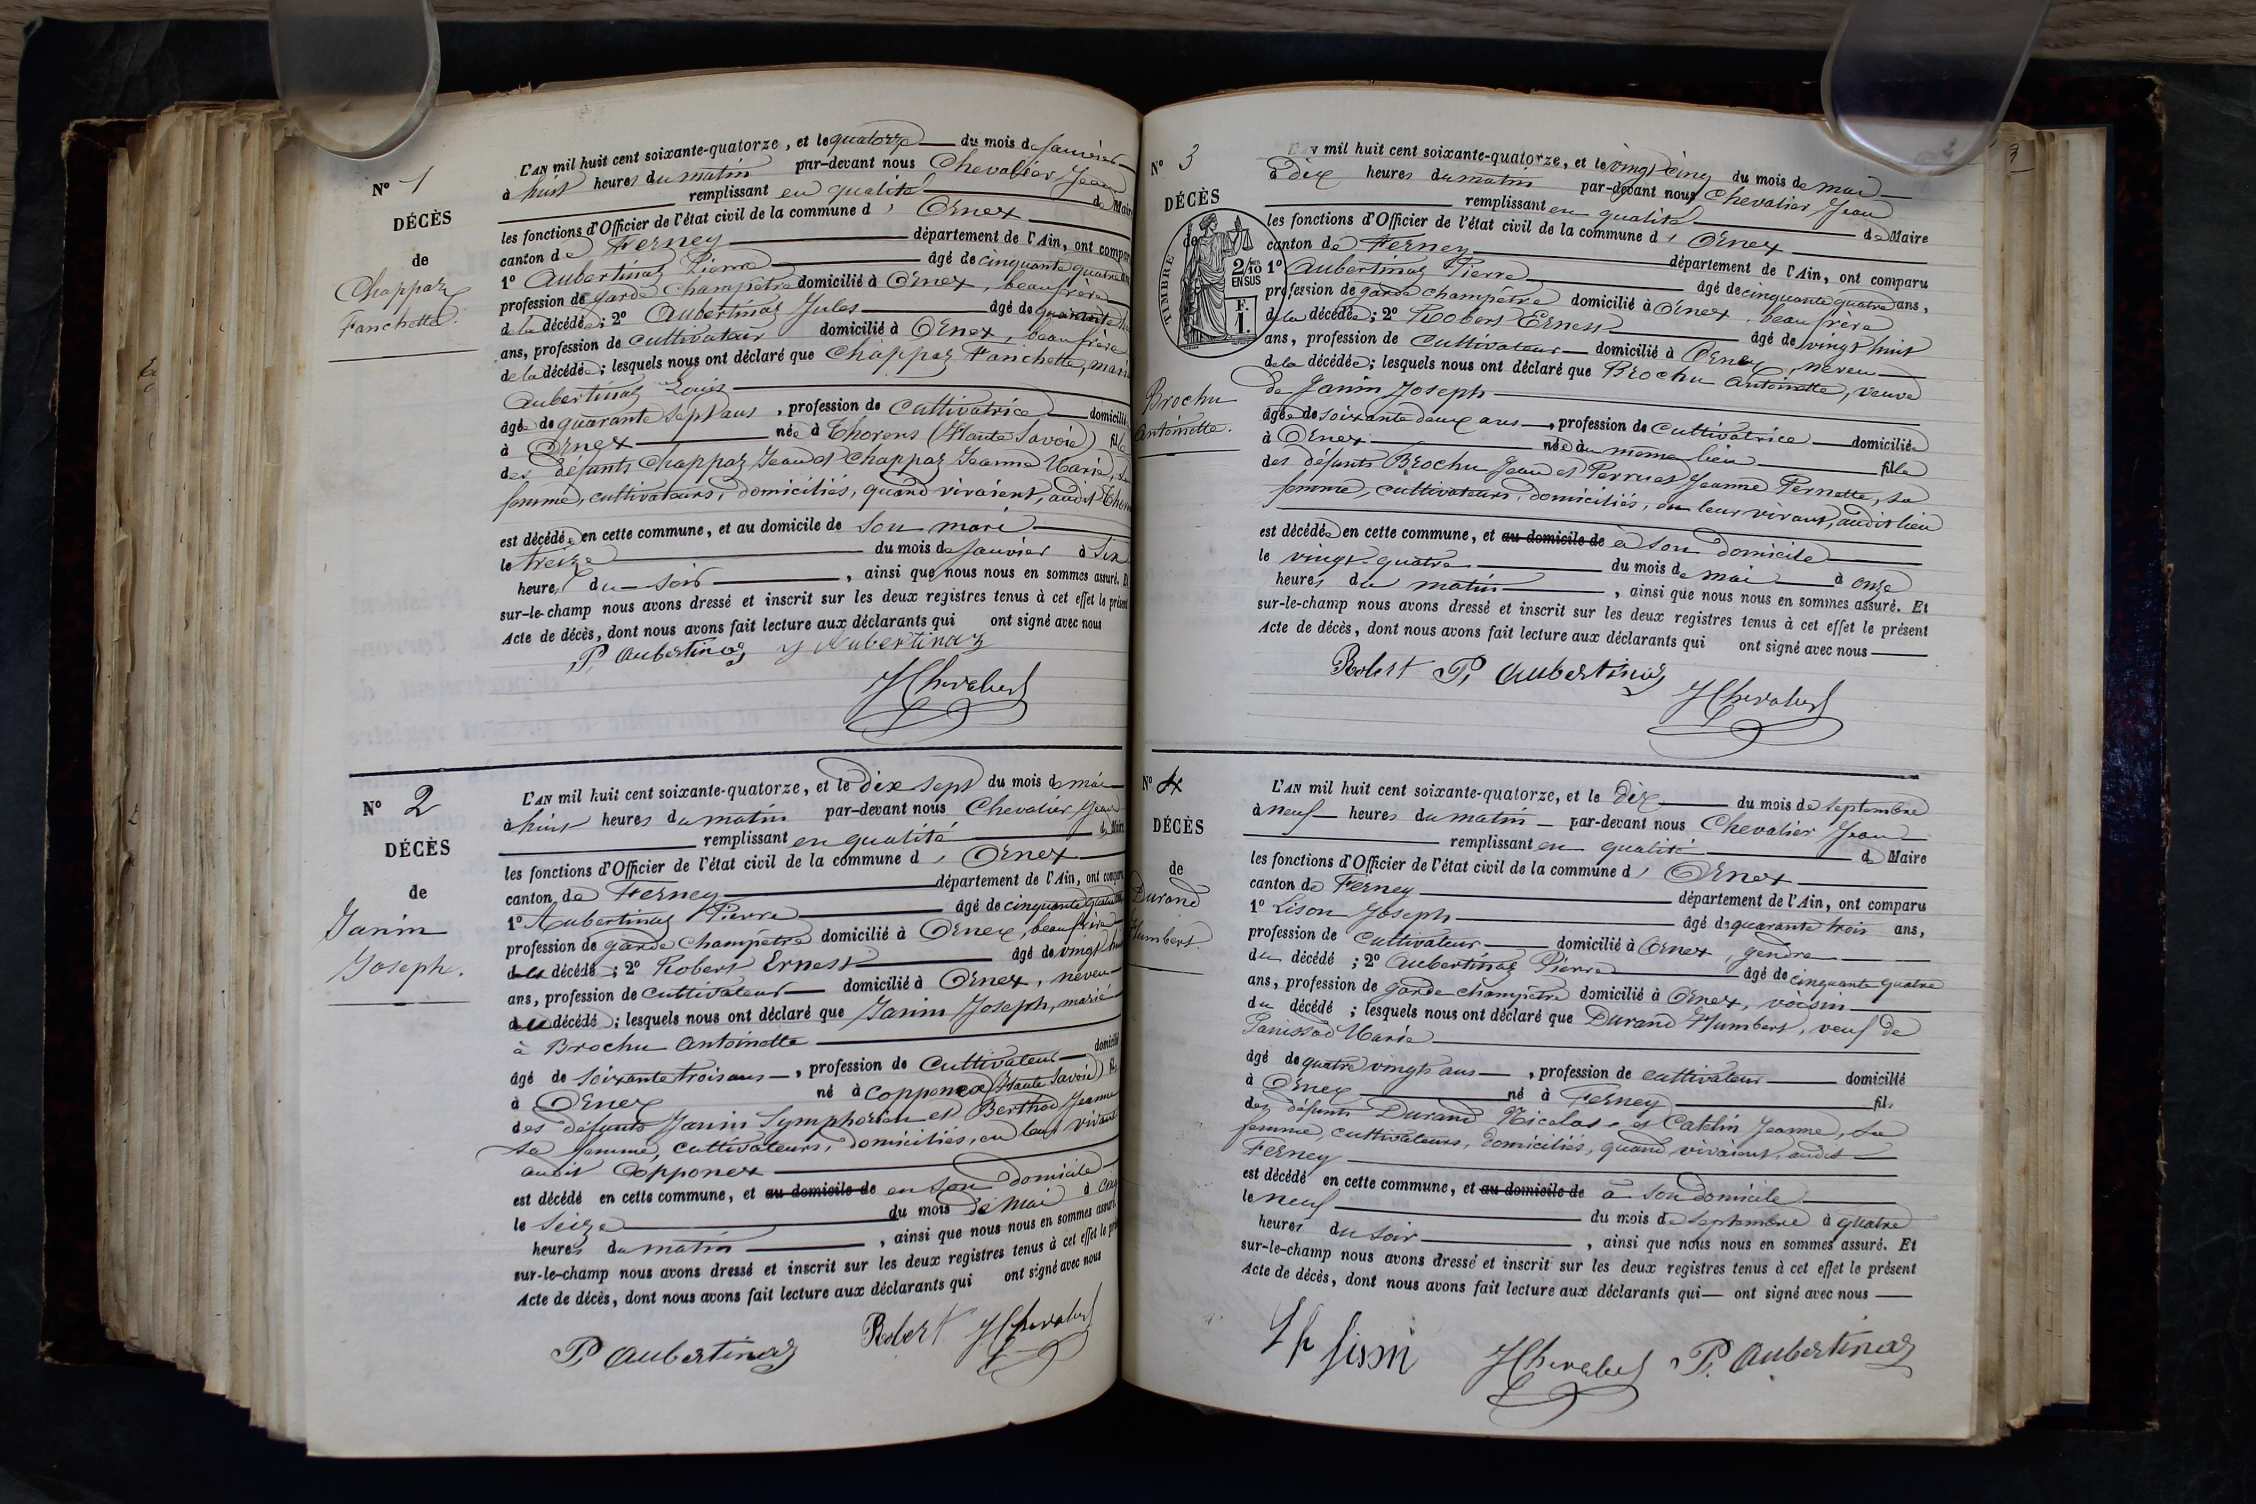 N° 1
DÉCÈS
de
Chappaz
Fanchette.
L'AN mil huit cent soixante-quatorze, et le quatorze du mois de Janvier
à huit heures du matin par-devant nous Chevalier Jean
remplissant en qualité de Maire
les fonctions d'Officier de l'état civil de la commune d' Ornex
canton de Ferney département de l'Ain, ont comparu
1° Aubertinaz Pierre âgé de cinquante quatre ans
profession de garde champêtre domicilié à Ornex, beau frère
de la décédée; 2° Aubertinaz Jules âgé de quarante
ans, profession de cultivateur domicilié à Ornex, beau frère
de la décédée; lesquels nous ont déclaré que Chappaz Fanchette, mari
Aubertinaz Louis
âgée de quarante sept ans, profession de cultivatrice domicilié
à Ornex née à Thorens (Haute Savoie) fille
des défunts Chappaz Jean et Chappaz Jeanne Marie, sa
femme, cultivateurs, domiciliés, quand vivaient, audit Thorens
est décédée en cette commune, et au domicile de son mari
le treize du mois de Janvier à six
heures du soir, ainsi que nous nous en sommes assuré. Et
sur-le-champ nous avons dressé et inscrit sur les deux registres tenus à cet effet le présent
Acte de décès, dont nous avons fait lecture aux déclarants qui ont signé avec nous
P. Aubertinaz J Aubertinaz
J Chevalier
N° 2
DÉCÈS
de
Janin
Joseph.
L'AN mil huit cent soixante-quatorze, et le dix sept du mois de mai
à huit heures du matin par-devant nous Chevalier Jean
remplissant en qualité de Maire
les fonctions d'Officier de l'état civil de la commune d' Ornex
canton de Ferney département de l'Ain, ont comparu
1° Aubertinaz Pierre âgé de cinquante quatre
profession de garde champêtre domicilié à Ornex, beau frère
du décédé; 2° Robert Ernest âgé de vingt huit
ans, profession de cultivateur domicilié à Ornex, neveu
du décédé; lesquels nous ont déclaré que Janin Joseph, marié
à Brochu Antoinette
âgé de soixante trois ans, profession de cultivateur domicilié
à Ornex né à Copponex (Haute Savoie) fils
des défunts Janin Symphorien et Berthod Jeanne
sa femme, cultivateurs, domiciliés, en leur vivant
audit Copponex
est décédé en cette commune, et au domicile de en son domicile
le seize du mois de Mai à cinq
heures du matin, ainsi que nous nous en sommes assuré.
sur-le-champ nous avons dressé et inscrit sur les deux registres tenus à cet effet le présent
Acte de décès, dont nous avons fait lecture aux déclarants qui ont signé avec nous
P. Aubertinaz Robert J Chevalier
N° 3
DÉCÈS
de
TIMBRE
2/10
EN SUS
F.
1.
Brochu
Antoinette.
L'AN mil huit cent soixante-quatorze, et le vingt cinq du mois de mai
à dix heures du matin par-devant nous Chevalier Jean
remplissant en qualité de Maire
les fonctions d'Officier de l'état civil de la commune d' Ornex
canton de Ferney département de l'Ain, ont comparu
1° Aubertinaz Pierre âgé de cinquante quatre ans,
profession de garde champêtre domicilié à Ornex, beau frère
de la décédée; 2° Robert Ernest âgé de vingt huit
ans, profession de cultivateur domicilié à Ornex, neveu
de la décédée; lesquels nous ont déclaré que Brochu Antoinette, veuve
de Janin Joseph
âgée de soixante deux ans, profession de cultivatrice domiciliée
à Ornex née au meme lieu fille
des défunts Brochu Jean et Perruet Jeanne Pernette, sa
femme, cultivateurs, domiciliés, en leur vivant, audit lieu
est décédée en cette commune, et au domicile de à son domicile
le vingt-quatre du mois de mai à onze
heures du matin, ainsi que nous nous en sommes assuré. Et
sur-le-champ nous avons dressé et inscrit sur les deux registres tenus à cet effet le présent
Acte de décès, dont nous avons fait lecture aux déclarants qui ont signé avec nous
Robert P. Aubertinaz
J Chevalier
N° 4
DÉCÈS
de
Durand
Humbert.
L'AN mil huit cent soixante-quatorze, et le dix du mois de septembre
à neuf heures du matin par-devant nous Chevalier Jean
remplissant en qualité de Maire
les fonctions d'Officier de l'état civil de la commune d' Ornex
canton de Ferney département de l'Ain, ont comparu
1° Lison Joseph âgé de quarante trois ans,
profession de cultivateur domicilié à Ornex, gendre
du décédé; 2° Aubertinaz Pierre âgé de cinquante quatre
ans, profession de garde champêtre domicilié à Ornex, voisin
du décédé; lesquels nous ont déclaré que Durand Humbert, veuf de
Panissod Marie
âgé de quatre vingts ans, profession de cultivateur domicilié
à Ornex né à Ferney fils
des défunts Durand Nicolas et Cattin Jeanne, sa
femme, cultivateurs, domiciliés, quand vivaient, audit
Ferney
est décédé en cette commune, et au domicile de à son domicile
le neuf du mois de septembre à quatre
heures du soir, ainsi que nous nous en sommes assuré. Et
sur-le-champ nous avons dressé et inscrit sur les deux registres tenus à cet effet le présent
Acte de décès, dont nous avons fait lecture aux déclarants qui ont signé avec nous
J Chevalier P. Aubertinaz